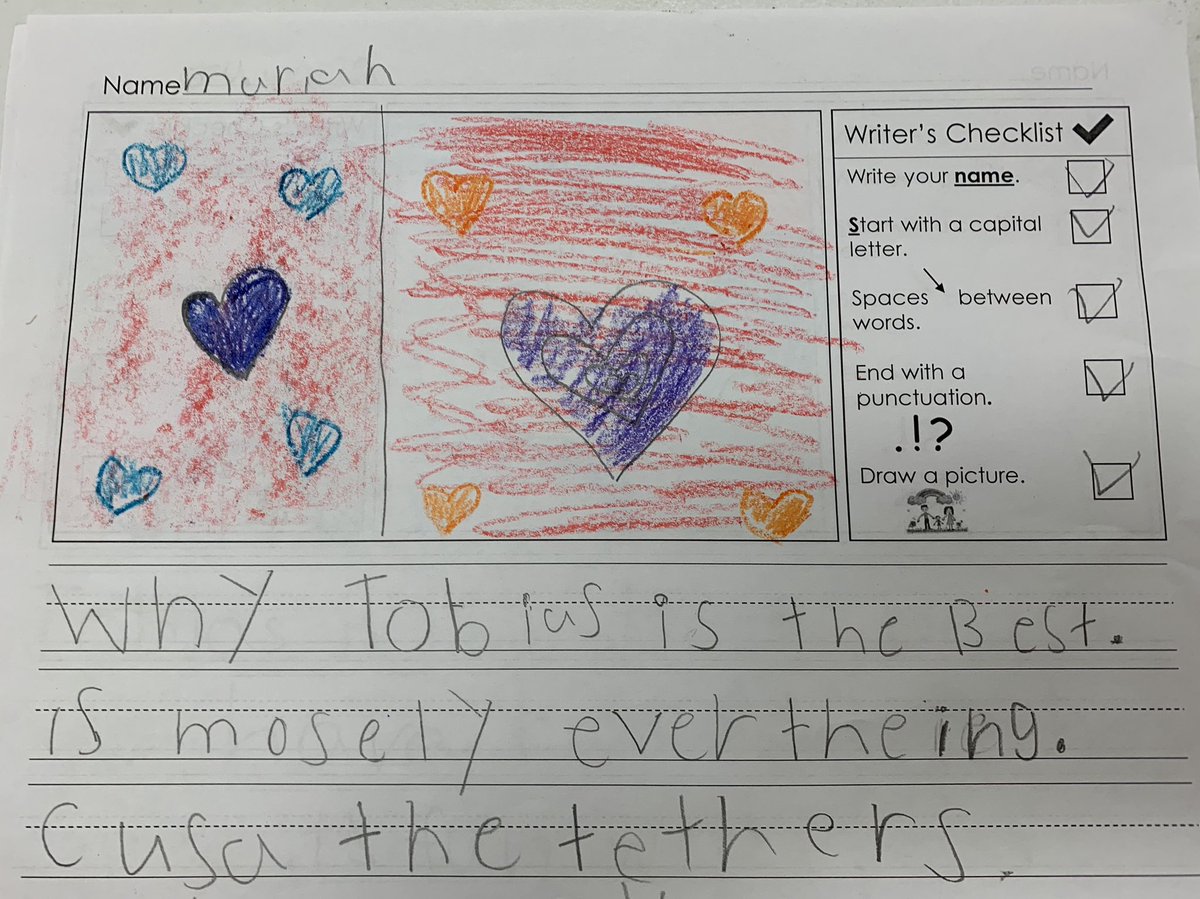 Name muriah
Writer's Checklist ✔
Write your name.
Start with a capital
letter.
Spaces between
words.
End with a
punctuation.
.!?
Draw a picture.
Why Tobias is the Best.
is mosely evertheing.
Cusa the tethers.